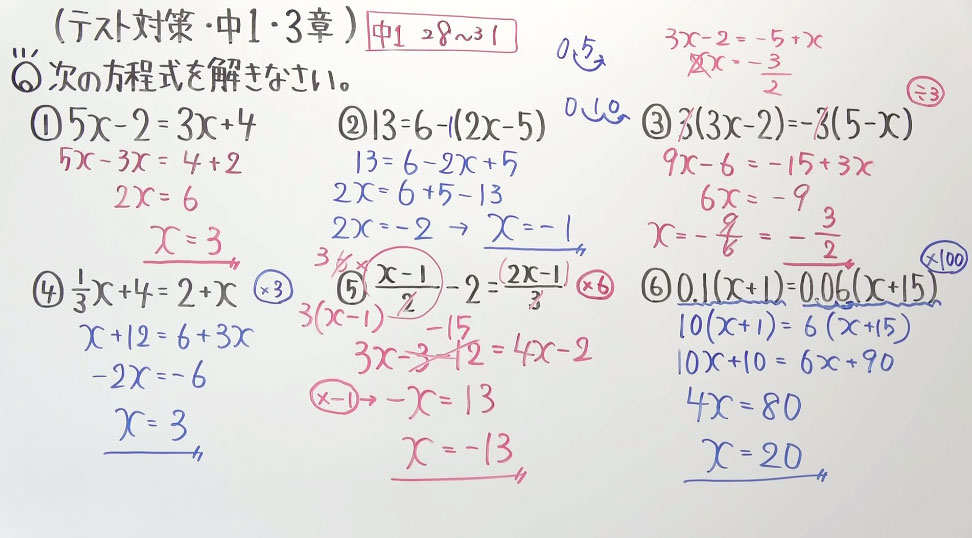 (テスト対策・中1・3章)
中1 28〜31
次の方程式を解きなさい。
① 5x-2=3x+4
5x-3x=4+2
2x=6
x=3
② 13=6-1(2x-5)
13=6-2x+5
2x=6+5-13
2x=-2 → x=-1
0.5
0.10
3x-2=-5+x
2x=-3/2
÷3
③ 3(3x-2)=-3(5-x)
9x-6=-15+3x
6x=-9
x=-9/6=-3/2
④ 1/3x+4=2+x ×3
x+12=6+3x
-2x=-6
x=3
3 6×
⑤ x-1/2-2=(2x-1)/3 ×6
3(x-1)
-15
3x-3-12=4x-2
×-1→ -x=13
x=-13
×100
⑥ 0.1(x+1)=0.06(x+15)
10(x+1)=6(x+15)
10x+10=6x+90
4x=80
x=20